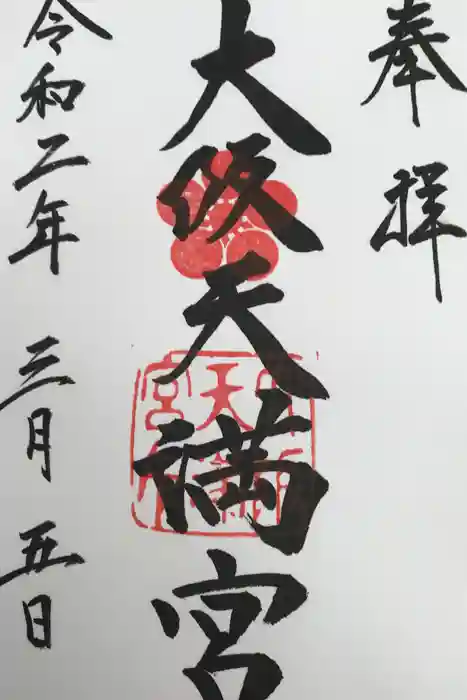 奉拝
大阪天満宮
令和二年 三月 五日